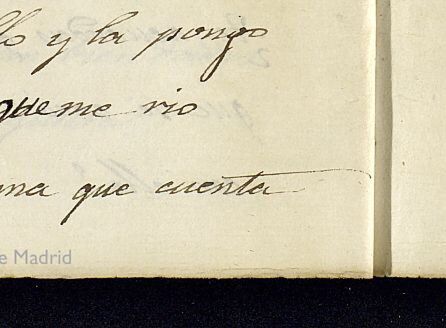 llo y la pongo
que me rio
ma que cuenta
e Madrid